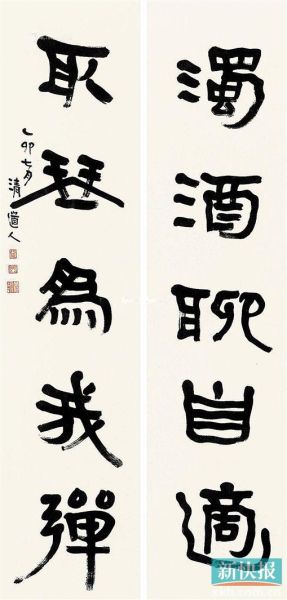 濁酒聊自適
取琴為我彈
乙卯七月
清道人
新快报